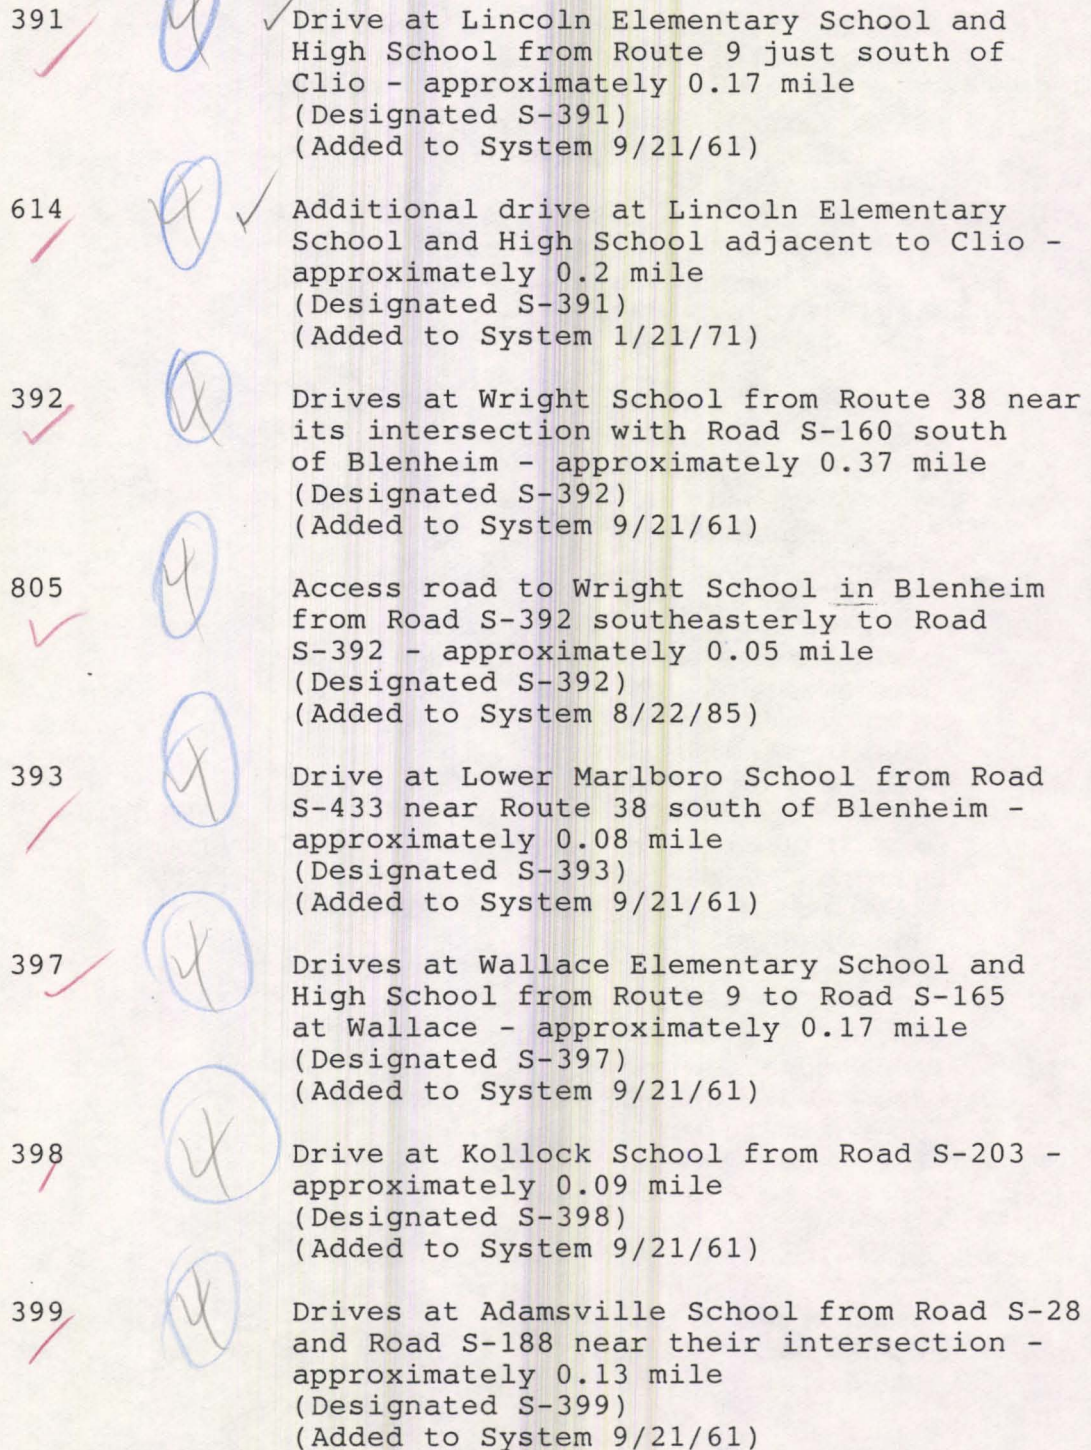 391 4 ✓ Drive at Lincoln Elementary School and
High School from Route 9 just south of
Clio - approximately 0.17 mile
(Designated S-391)
(Added to System 9/21/61)
614 4 ✓ Additional drive at Lincoln Elementary
School and High School adjacent to Clio -
approximately 0.2 mile
(Designated S-391)
(Added to System 1/21/71)
392 4 Drives at Wright School from Route 38 near
its intersection with Road S-160 south
of Blenheim - approximately 0.37 mile
(Designated S-392)
(Added to System 9/21/61)
805 4 Access road to Wright School in Blenheim
from Road S-392 southeasterly to Road
S-392 - approximately 0.05 mile
(Designated S-392)
(Added to System 8/22/85)
393 4 Drive at Lower Marlboro School from Road
S-433 near Route 38 south of Blenheim -
approximately 0.08 mile
(Designated S-393)
(Added to System 9/21/61)
397 4 Drives at Wallace Elementary School and
High School from Route 9 to Road S-165
at Wallace - approximately 0.17 mile
(Designated S-397)
(Added to System 9/21/61)
398 4 Drive at Kollock School from Road S-203 -
approximately 0.09 mile
(Designated S-398)
(Added to System 9/21/61)
399 4 Drives at Adamsville School from Road S-28
and Road S-188 near their intersection -
approximately 0.13 mile
(Designated S-399)
(Added to System 9/21/61)